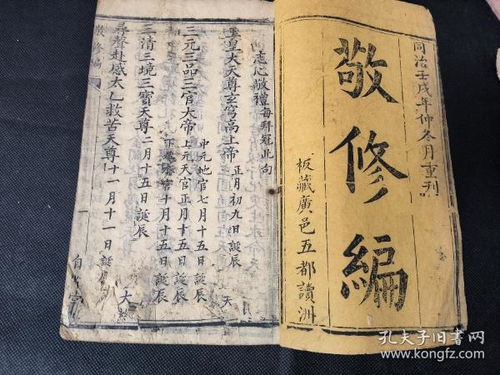 同治壬戌年仲冬月重刊
敬修編
板藏廣邑五都讀洲
志心敬禮每拜冠此句
玉皇大天尊玄穹高上帝正月初九日誕辰
三元三品三官大帝上元天官正月十五日誕辰
中元地官七月十五日誕辰
十月十五日誕辰
三清三境三寶天尊二月十五日誕辰
尋聲赴感太乙救苦天尊十一月十一日誕辰
敬修編
天
大
自
孔夫子旧书网
www.kongfz.com